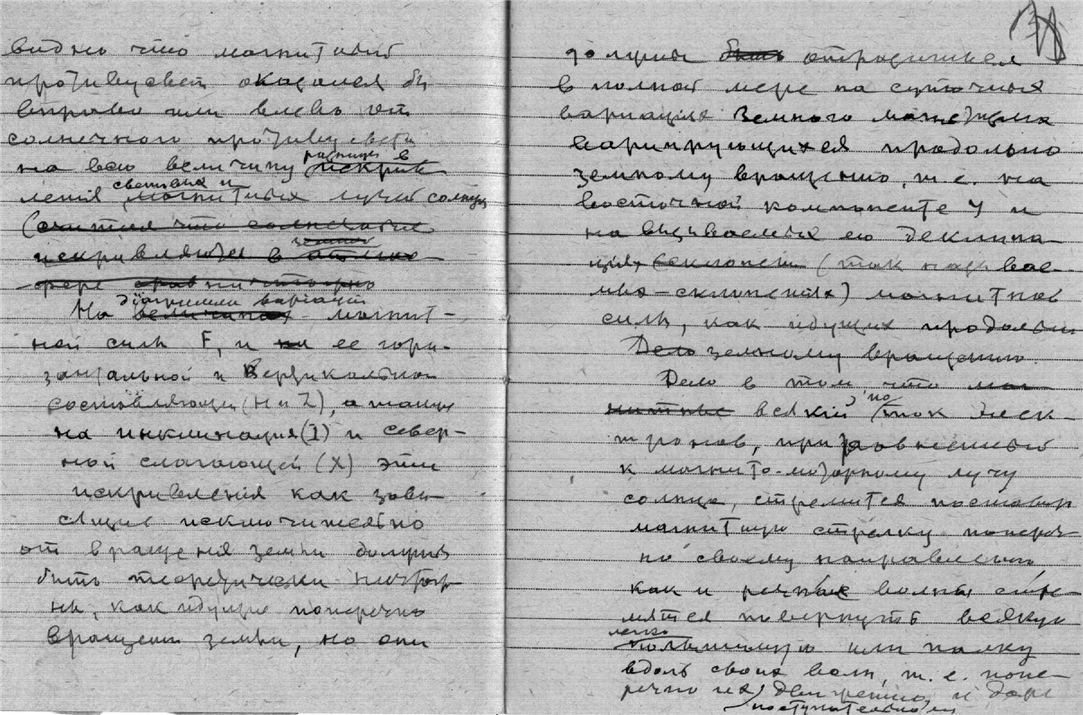 видно что магнитный
противусвет оказался бы
вправо или влево от
солнечного противусвета
на всю величину разницы в искрив
световых и
ления магнитных лучей солнца
(считая что солнечные
искривляются в земной атмо
сфере ничтожно
диаграммы вариаций
На величинах магнит-
ной силы F, и на ее гори-
зантральной и Вертикальной
составляющей (H и Z), а также
на инклинация (I) и север-
ной слагающей (X) эти
искривления как зави-
сящие исключительно
от вращения земли должны
быть теоретически ничтож-
ны, как идущие поперечно
вращению земли, но они
должны быть отразиться
в полной мере на суточных
вариациях земного магнетизма
варирующихся продольно
земному вращению, т.е. на
восточной компоненте Y и
на вызываемых ею деклина-
циях (так называе-
мых - склонениях) магнитной
силы, как идущих продольно
Дело земному вращению.
Дело в том, что маг
нитные всякий поток элек-
тронов, приравненный
к магнито-моторному лучу
солнца, стремится поставить
магнитную стрелку попереч-
но своему направлению,
как и речные волны стре-
мятся повернуть всякую
или палку
вдоль своих волн, т.е. попе-
речно их движению, и даже
поступательному